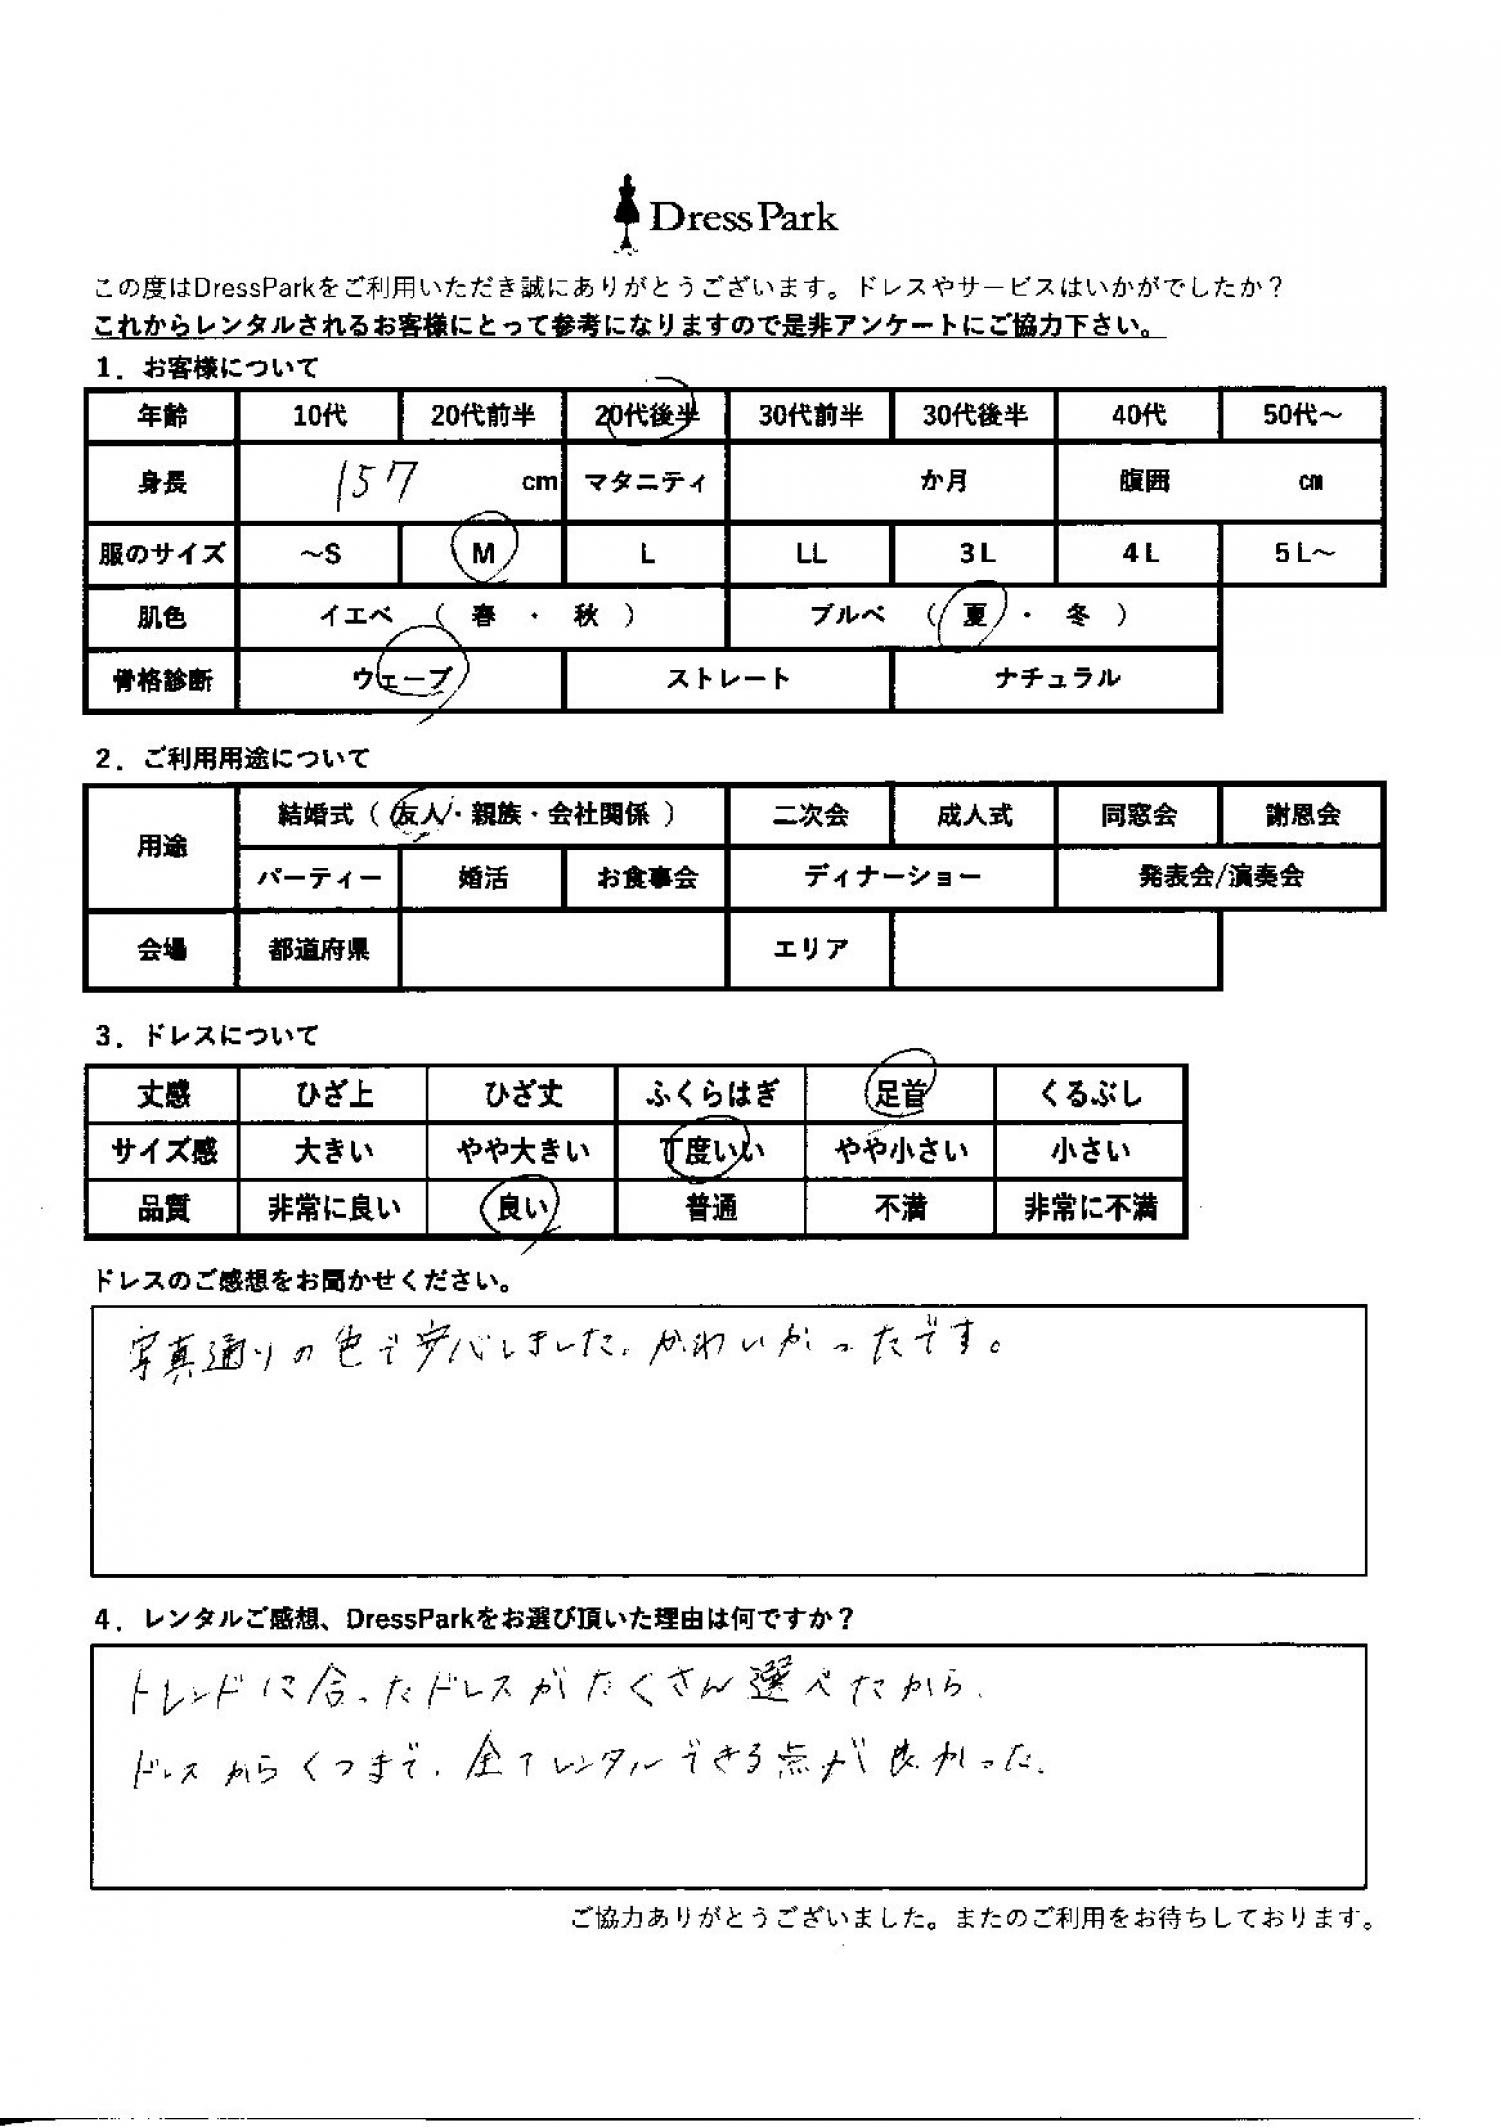 Dress Park
この度はDressParkをご利用いただき誠にありがとうございます。ドレスやサービスはいかがでしたか？
これからレンタルされるお客様にとって参考になりますので是非アンケートにご協力下さい。
1．お客様について
年齢 10代 20代前半 20代後半 30代前半 30代後半 40代 50代～
身長 157 cm マタニティ か月 腹囲 ㎝
服のサイズ ～S M L LL 3L 4L 5L～
肌色 イエベ （ 春 ・ 秋 ） ブルベ （ 夏 ・ 冬 ）
骨格診断 ウェーブ ストレート ナチュラル
2．ご利用用途について
用途 結婚式（ 友人・親族・会社関係 ） 二次会 成人式 同窓会 謝恩会
パーティー 婚活 お食事会 ディナーショー 発表会/演奏会
会場 都道府県 エリア
3．ドレスについて
丈感 ひざ上 ひざ丈 ふくらはぎ 足首 くるぶし
サイズ感 大きい やや大きい 丁度いい やや小さい 小さい
品質 非常に良い 良い 普通 不満 非常に不満
ドレスのご感想をお聞かせください。
写真通りの色で安心しました。かわいかったです。
4．レンタルご感想、DressParkをお選び頂いた理由は何ですか？
トレンドに合ったドレスがたくさん選べたから。
ドレスからくつまで、全てレンタルできる点が良かった。
ご協力ありがとうございました。またのご利用をお待ちしております。